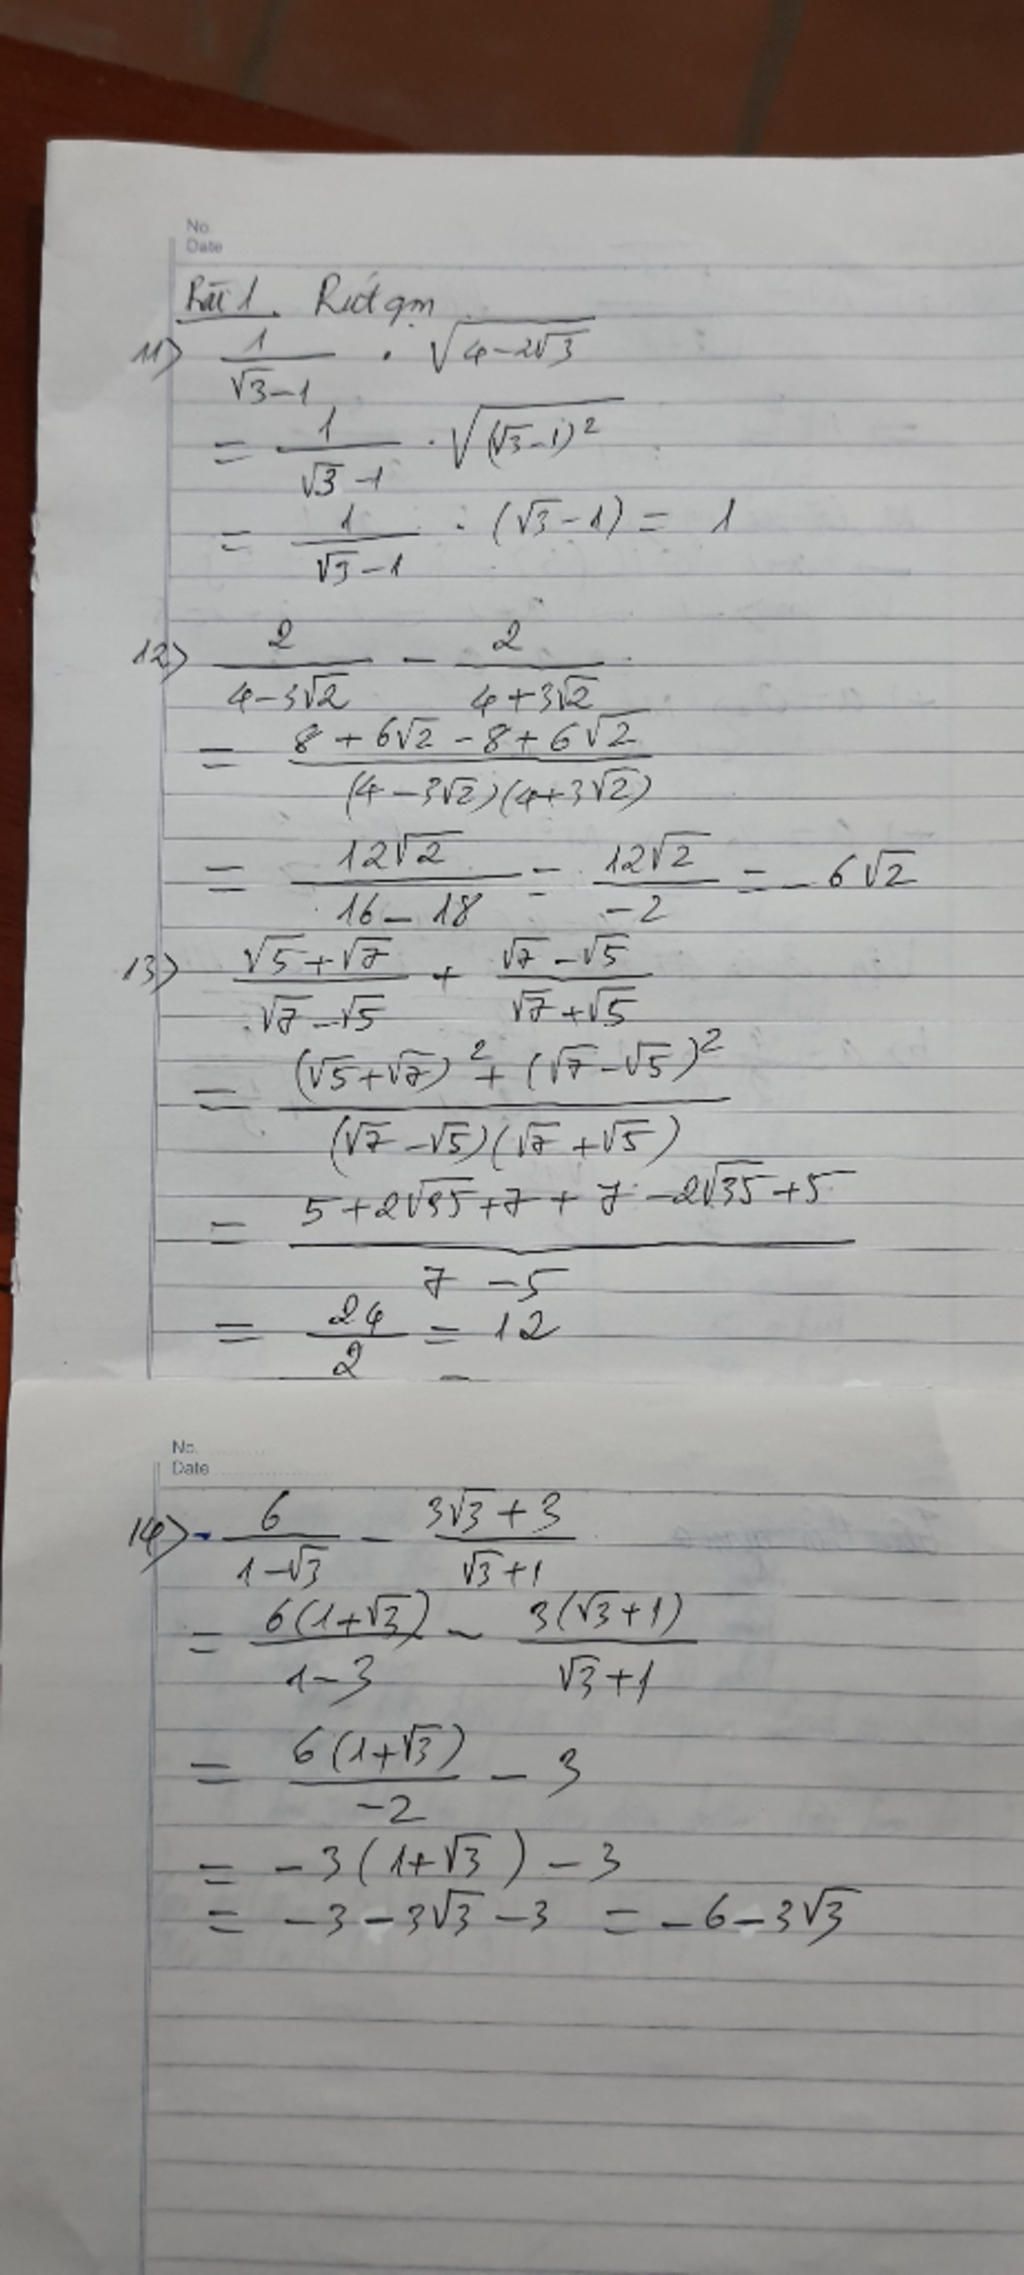 No.
Date
Bài 1. Rút gọn
11) 1/(√3-1) . √(4-2√3)
= 1/(√3-1) . √((√3-1)²)
= 1/(√3-1) . (√3-1) = 1
12) 2/(4-3√2) - 2/(4+3√2)
= (8+6√2-8+6√2)/((4-3√2)(4+3√2))
= 12√2/(16-18) = 12√2/(-2) = -6√2
13) (√5+√7)/(√7-√5) + (√7-√5)/(√7+√5)
= ((√5+√7)²+(√7-√5)²)/((√7-√5)(√7+√5))
= (5+2√35+7+7-2√35+5)/(7-5)
= 24/2 = 12
No.
Date
14) 6/(1-√3) - (3√3+3)/(√3+1)
= 6(1+√3)/(1-3) - 3(√3+1)/(√3+1)
= 6(1+√3)/(-2) - 3
= -3(1+√3)-3
= -3-3√3-3 = -6-3√3